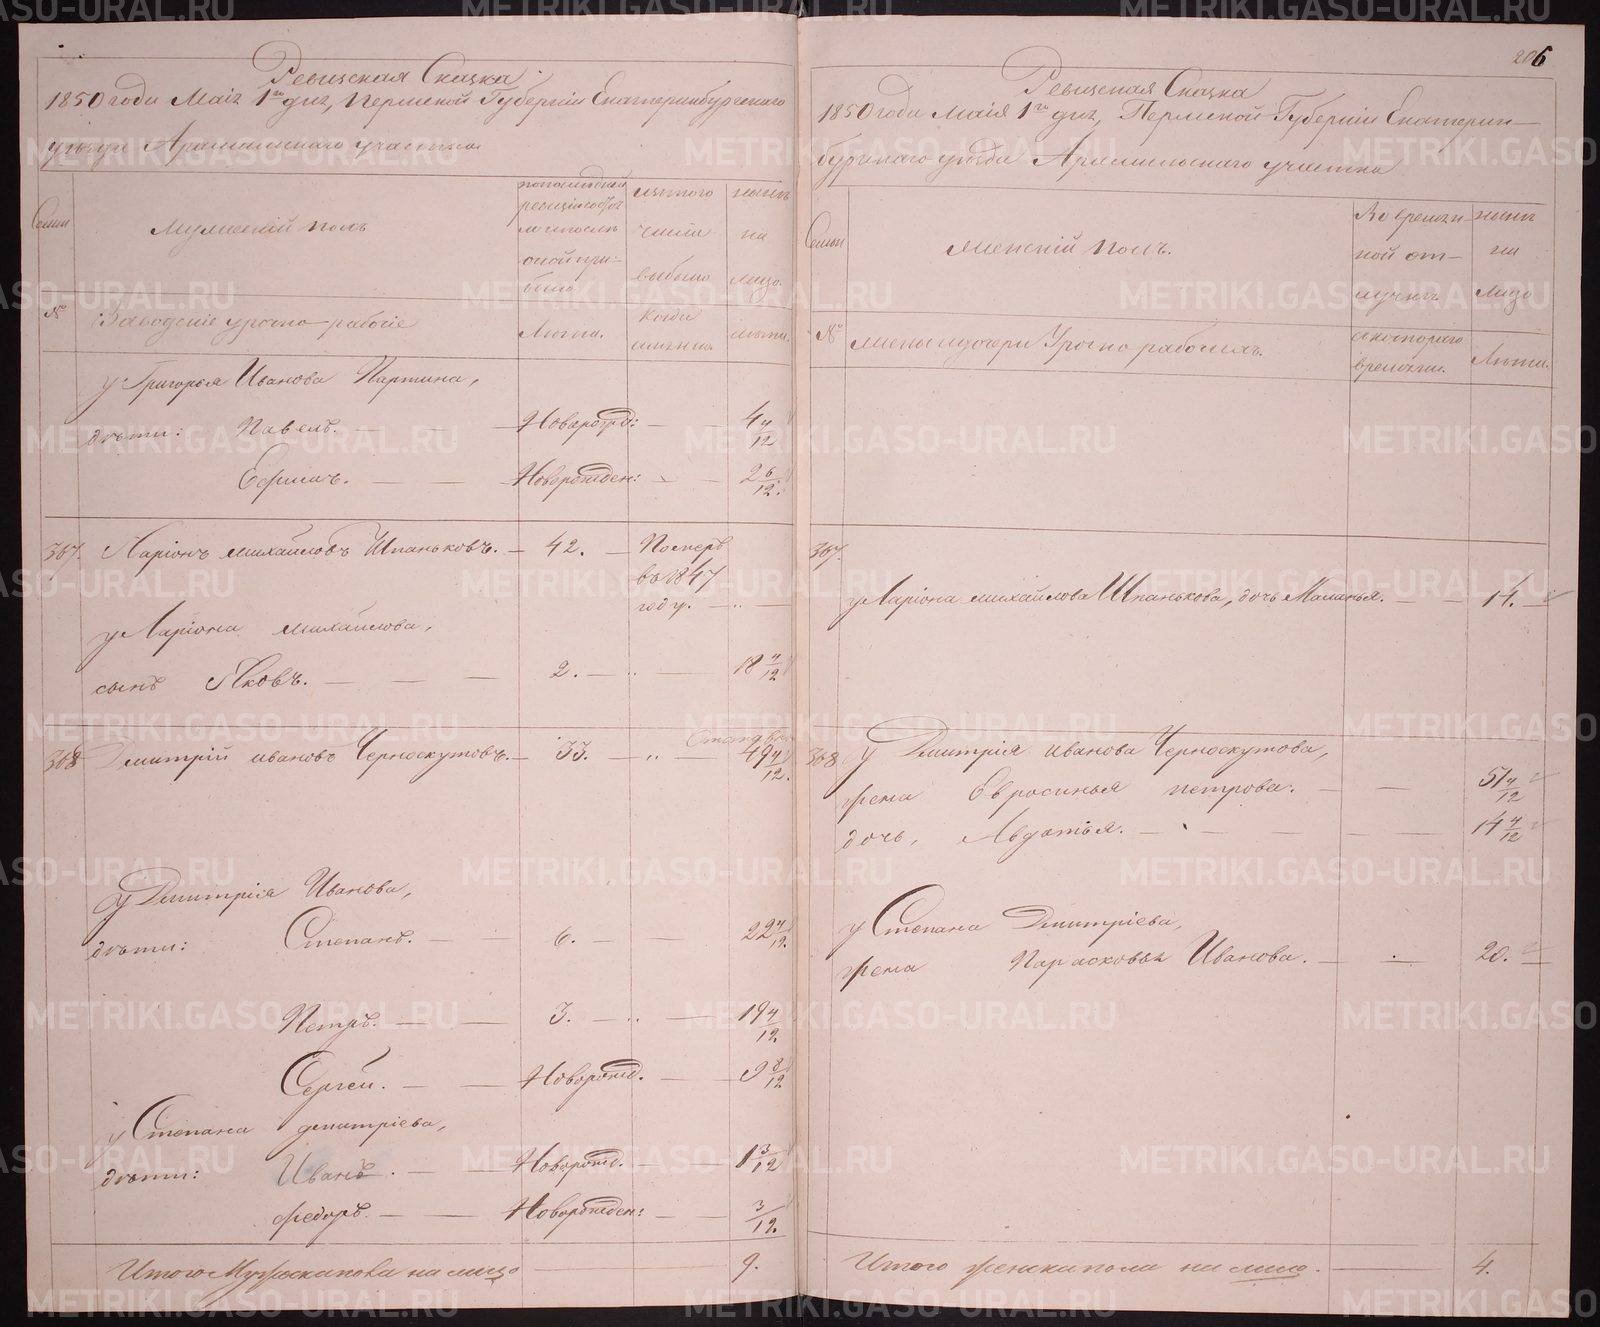 206
Ревизская Сказка
1850 года Маія 1го дня, Пермской Губерніи Екатеринбургскаго
уѣзда Арамильскаго участка
Семьи
Мужескій полъ
по последней
ревизіи состоя
ло и после
оной при-
было
изъ того
числа
выбыло
нынѣ
на
лицо.
№
Заводскіе урочно-рабочіе
Лѣта.
Когда
именно.
лѣта.
у Григорья Иванова Паршина,
дѣти: Павелъ. — — Новорожд: — 4 4/12
Ефимъ. — — Новорожден: — 2 6/12.
367. Ларіонъ Михайловъ Шпаньковъ. — 42. — Померъ
въ 1847
году. —
у Ларіона Михайлова,
сынъ Яковъ. — — 2. — 18 4/12
368 Дмитрій Ивановъ Черноскутовъ. — 33. — „ — 49 4/12.
у Дмитрія Иванова,
дѣти: Степанъ. — 6. — — 22 4/12.
Петръ. — — 3. — „ — 19 4/12.
Сергей. — — Новорожд. — 9 8/12
у Степана Дмитріева,
дѣти: Иванъ. — Новорожд. — 1 3/12
Федоръ. — — Новорожден: — 3/12.
Итого Мужеска пола на лицо — 9.
Ревизская Сказка
1850 года Маія 1го дня, Пермской Губерніи Екатерин-
бургскаго уѣзда Арамильскаго участка
Семьи
Женскій полъ.
Во времен
ной от-
лучкѣ
нынѣ
на
лицо
№
жены и дочери Урочно рабочихъ.
съ котораго
времени.
Лѣта.
367.
у Ларіона Михайлова Шпанькова, дочь Маланья. — — 14. —
368 у Дмитрія Иванова Черноскутова,
жена Евросинья Петрова. — — 51 4/12
дочь, Авдотья. — — 14 4/12
у Степана Дмитріева,
жена Парасковья Иванова. — — 20. —
Итого женска пола на лицо. — 4.
METRIKI.GASO-URAL.RU